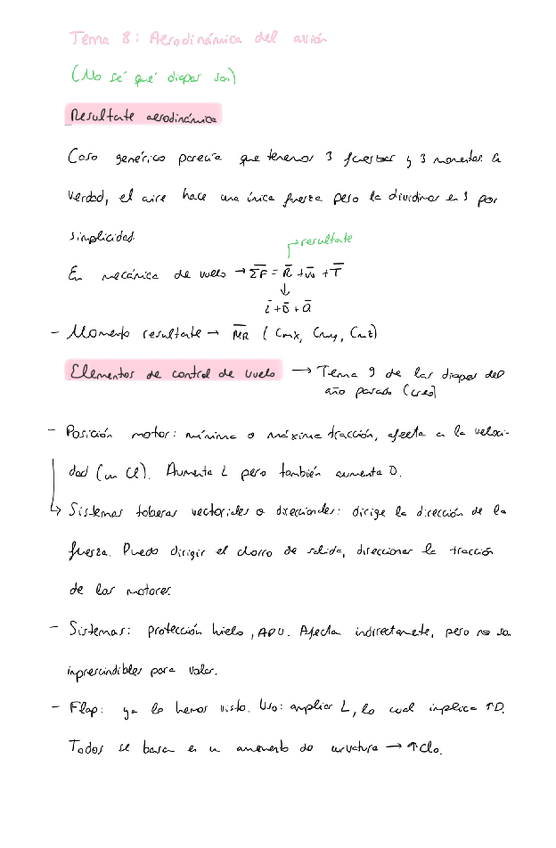 Tema 8: Aerodinámica del avión
(No sé qué diapos son)
Resultante aerodinámica
Caso genérico parecía que tenemos 3 fuerzas y 3 momentos. En
verdad, el aire hace una única fuerza pero la dividimos en 3 por
simplicidad.
resultante
En mecánica de vuelo → ΣF̅ = R̅ + w̅ + T̅
↓
L̅ + D̅ + Q̅
- Momento resultante → M̅R (Cmx, Cmy, Cmz)
Elementos de control de vuelo → Tema 9 de las diapos del
año pasado (creo)
- Posición motor: mínima o máxima tracción, afecta a la veloci-
dad (un Cl). Aumenta L pero también aumenta D.
↳ Sistemas toberas vectoriales o direccionales: dirige la dirección de la
fuerza. Puedo dirigir el chorro de salida, direccionar la tracción
de los motores.
- Sistemas: protección hielo, APU. Afecta indirectamente, pero no son
imprescindibles para volar.
- Flap: ya lo hemos visto. Uso: ampliar L, lo cual implica ↑D.
Todos se basan en un aumento de curvatura → ↑Clo.